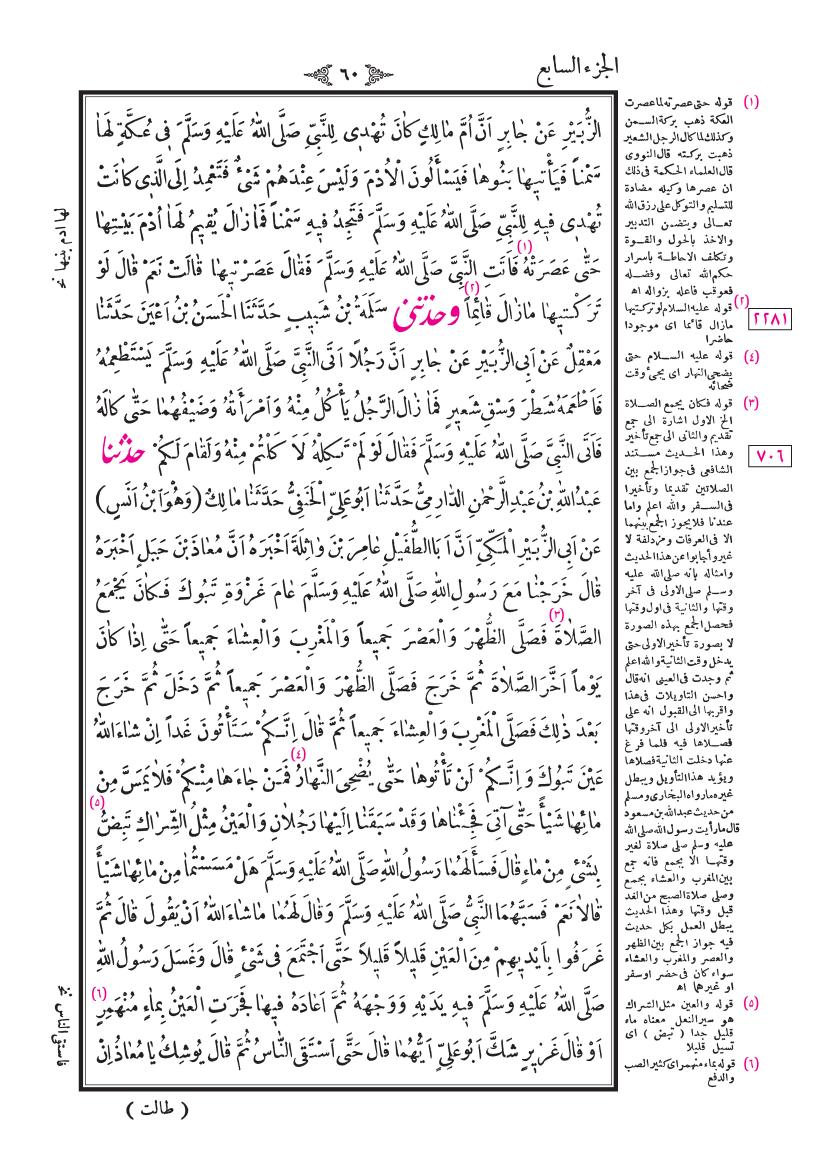 الجزء السابع
٦٠
الزُّبَيْرِ عَنْ جَابِرٍ اَنَّ اُمَّ مَالِكٍ كَانَتْ تُهْدِى لِلنَّبِىِّ صَلَّى اللهُ عَلَيْهِ وَسَلَّمَ فِى عُكَّةٍ لَهَا
سَمْناً فَيَأْتِيهَا بَنُوهَا فَيَسْأَلُونَ الْاُدْمَ وَلَيْسَ عِنْدَهُمْ شَىْءٌ فَتَعْمِدُ اِلَى الَّذِى كَانَتْ
تُهْدِى فِيهِ لِلنَّبِىِّ صَلَّى اللهُ عَلَيْهِ وَسَلَّمَ فَتَجِدُ فِيهِ سَمْناً فَمَا زَالَ يُقِيمُ لَهَا اُدْمَ بَيْتِهَا
حَتَّى عَصَرَتْهُ (١) فَاَتَتِ النَّبِىَّ صَلَّى اللهُ عَلَيْهِ وَسَلَّمَ فَقَالَ عَصَرْتِيهَا قَالَتْ نَعَمْ قَالَ لَوْ
تَرَكْتِيهَا مَازَالَ قَائِماً (٢) وحدثنى سَلَمَةُ بْنُ شَبِيبٍ حَدَّثَنَا الْحَسَنُ بْنُ اَعْيَنَ حَدَّثَنَا
مَعْقِلٌ عَنْ اَبِى الزُّبَيْرِ عَنْ جَابِرٍ اَنَّ رَجُلاً اَتَى النَّبِىَّ صَلَّى اللهُ عَلَيْهِ وَسَلَّمَ يَسْتَطْعِمُهُ
فَاَطْعَمَهُ شَطْرَ وَسْقِ شَعِيرٍ فَمَا زَالَ الرَّجُلُ يَأْكُلُ مِنْهُ وَامْرَأَتُهُ وَضَيْفُهُمَا حَتَّى كَالَهُ
فَاَتَى النَّبِىَّ صَلَّى اللهُ عَلَيْهِ وَسَلَّمَ فَقَالَ لَوْ لَمْ تَكِلْهُ لَاَكَلْتُمْ مِنْهُ وَلَقَامَ لَكُمْ حدثنا
عَبْدُاللهِ بْنُ عَبْدِالرَّحْمٰنِ الدَّارِمِىُّ حَدَّثَنَا اَبُو عَلِىٍّ الْحَنَفِىُّ حَدَّثَنَا مَالِكٌ (وَهُوَ ابْنُ اَنَسٍ)
عَنْ اَبِى الزُّبَيْرِ الْمَكِّىِّ اَنَّ اَبَا الطُّفَيْلِ عَامِرَ بْنَ وَاثِلَةَ اَخْبَرَهُ اَنَّ مُعَاذَ بْنَ جَبَلٍ اَخْبَرَهُ
قَالَ خَرَجْنَا مَعَ رَسُولِ اللهِ صَلَّى اللهُ عَلَيْهِ وَسَلَّمَ عَامَ غَزْوَةِ تَبُوكَ فَكَانَ يَجْمَعُ
الصَّلاَةَ (٣) فَصَلَّى الظُّهْرَ وَالْعَصْرَ جَمِيعاً وَالْمَغْرِبَ وَالْعِشَاءَ جَمِيعاً حَتَّى اِذَا كَانَ
يَوْماً اَخَّرَ الصَّلاَةَ ثُمَّ خَرَجَ فَصَلَّى الظُّهْرَ وَالْعَصْرَ جَمِيعاً ثُمَّ دَخَلَ ثُمَّ خَرَجَ
بَعْدَ ذٰلِكَ فَصَلَّى الْمَغْرِبَ وَالْعِشَاءَ جَمِيعاً ثُمَّ قَالَ اِنَّكُمْ سَتَأْتُونَ غَداً اِنْ شَاءَ اللهُ
عَيْنَ تَبُوكَ وَاِنَّكُمْ لَنْ تَأْتُوهَا حَتَّى يُضْحِىَ النَّهَارُ (٤) فَمَنْ جَاءَهَا مِنْكُمْ فَلاَ يَمَسَّ مِنْ
مَائِهَا شَيْأً حَتَّى آتِىَ فَجِئْنَاهَا وَقَدْ سَبَقَنَا اِلَيْهَا رَجُلاَنِ وَالْعَيْنُ مِثْلُ الشِّرَاكِ تَبِضُّ (٥)
بِشَىْءٍ مِنْ مَاءٍ قَالَ فَسَأَلَهُمَا رَسُولُ اللهِ صَلَّى اللهُ عَلَيْهِ وَسَلَّمَ هَلْ مَسَسْتُمَا مِنْ مَائِهَا شَيْأً
قَالاَ نَعَمْ فَسَبَّهُمَا النَّبِىُّ صَلَّى اللهُ عَلَيْهِ وَسَلَّمَ وَقَالَ لَهُمَا مَا شَاءَ اللهُ اَنْ يَقُولَ قَالَ ثُمَّ
غَرَفُوا بِاَيْدِيهِمْ مِنَ الْعَيْنِ قَلِيلاً قَلِيلاً حَتَّى اجْتَمَعَ فِى شَىْءٍ قَالَ وَغَسَلَ رَسُولُ اللهِ
صَلَّى اللهُ عَلَيْهِ وَسَلَّمَ فِيهِ يَدَيْهِ وَوَجْهَهُ ثُمَّ اَعَادَهُ فِيهَا فَجَرَتِ الْعَيْنُ بِمَاءٍ مُنْهَمِرٍ (٦)
اَوْ قَالَ غَزِيرٍ شَكَّ اَبُو عَلِىٍّ اَيُّهُمَا قَالَ حَتَّى اسْتَقَى النَّاسُ ثُمَّ قَالَ يُوشِكُ يَا مُعَاذُ اِنْ
( طالت )
لها ادم بنيها نخ
فاستقى الناس نخ
(١) قوله حتى عصرته لما عصرت
العكة ذهب بركة السمن
وكذلك لما كال الرجل الشعير
ذهبت بركته قال النووى
قال العلماء الحكمة فى ذلك
ان عصرها وكيله مضادة
للتسليم والتوكل على رزق الله
تعالى ويتضمن التدبير
والاخذ بالحول والقوة
وتكلف الاحاطة باسرار
حكم الله تعالى وفضله
فعوقب فاعله بزواله اه
(٢) قوله عليه السلام لو تركتيها
مازال قائما اى موجودا
حاضرا
٢٢٨١
(٤) قوله عليه السلام حتى
يضحى النهار اى يجئ وقت
ضحائه
(٣) قوله فكان يجمع الصلاة
الخ الاول اشارة الى جمع
تقديم والثانى الى جمع تأخير
وهذا الحديث مستند
٧٠٦
الشافعى فى جواز الجمع بين
الصلاتين تقديما وتأخيرا
فى السفر والله اعلم واما
عندنا فلا يجوز الجمع بينهما
الا فى العرفات ومزدلفة لا
غير وأجابوا عن هذا الحديث
وامثاله بانه صلى الله عليه
وسلم صلى الاولى فى آخر
وقتها والثانية فى اول وقتها
فحصل الجمع بهذه الصورة
لا بصورة تأخير الاولى حتى
يدخل وقت الثانية والله اعلم
ثم وجدت فى العينى انه قال
واحسن التاويلات فى هذا
واقربها الى القبول انه على
تأخير الاولى الى آخر وقتها
فصلاها فيه فلما فرغ
عنها دخلت الثانية فصلاها
ويؤيد هذا التأويل ويبطل
غيره ما رواه البخارى ومسلم
من حديث عبدالله بن مسعود
قال ما رأيت رسول الله صلى الله
عليه وسلم صلى صلاة لغير
وقتها الا بجمع فانه جمع
بين المغرب والعشاء بجمع
وصلى صلاة الصبح من الغد
قبل وقتها وهذا الحديث
يبطل العمل بكل حديث
فيه جواز الجمع بين الظهر
والعصر والمغرب والعشاء
سواء كان فى حضر او سفر
او غيرها اه
(٥) قوله والعين مثل الشراك
هو سير النعل معناه ماء
قليل جدا ( تبض ) اى
تسيل قليلا
(٦) قوله بماء منهمر اى كثير الصب
والدفع